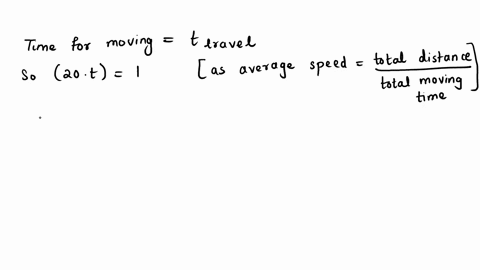 Time for moving = t travel
So (20·t) = 1 [as average speed = total distance / total moving time]